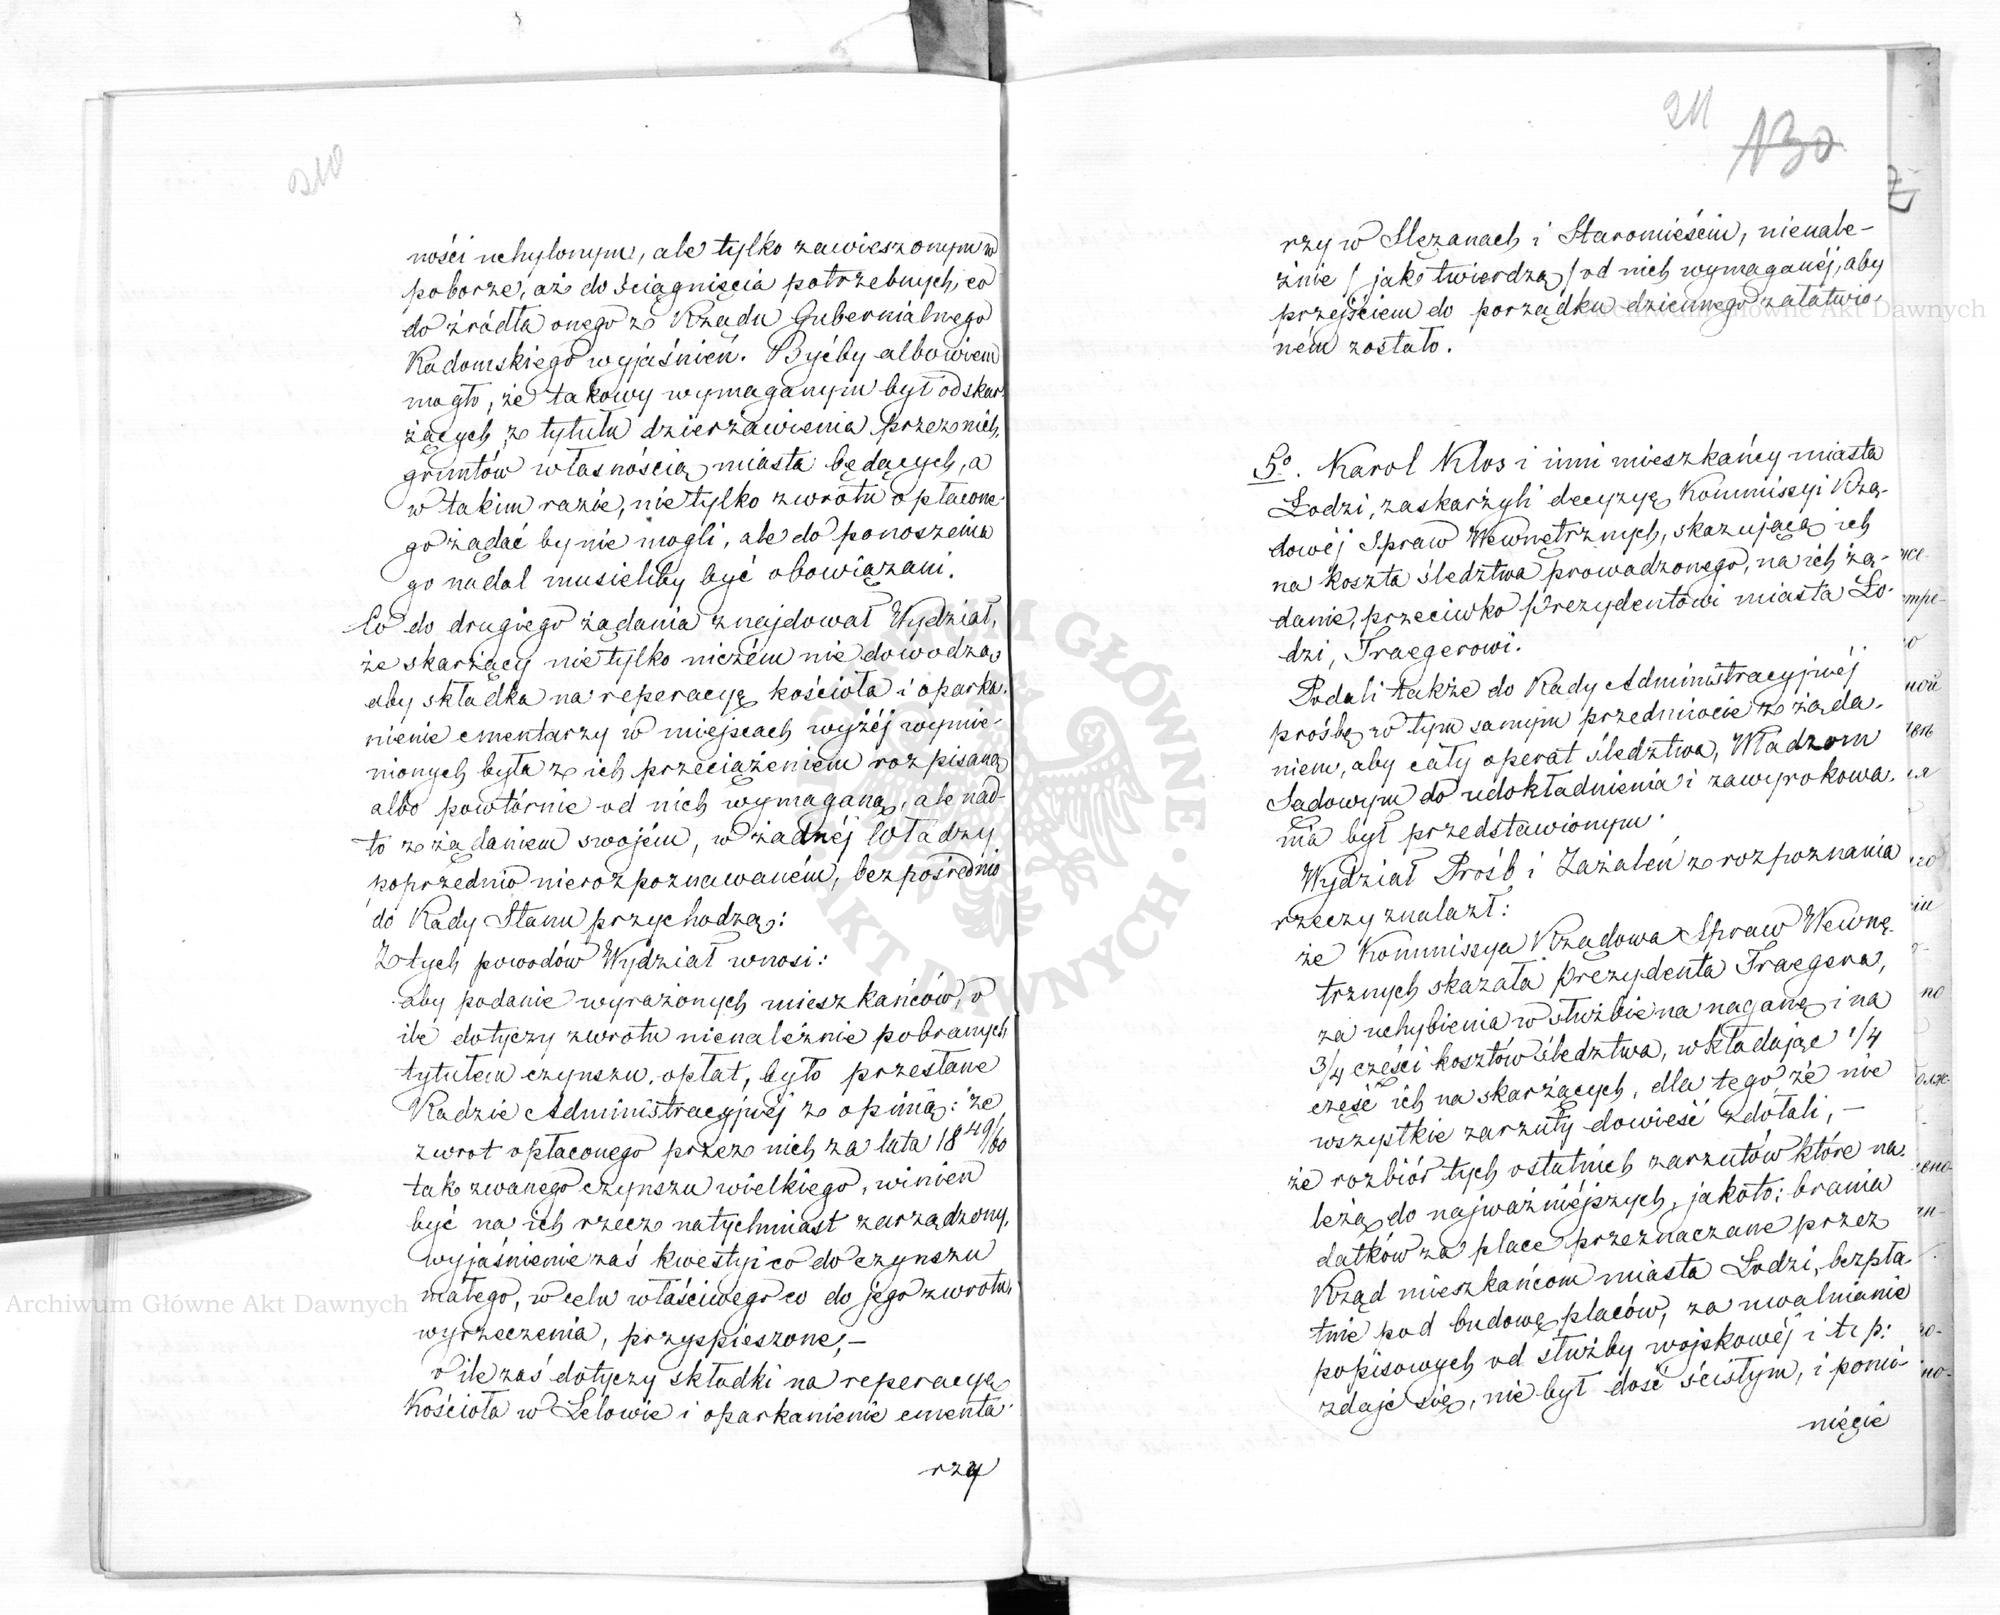 210
ności uchylonym, ale tylko zawieszonym w
poborze, aż do ściągnięcia potrzebnych, co
do źródła onego z Rządu Gubernialnego
Radomskiego wyjaśnień. Byćby albowiem
mogło, że takowy wymaganym był od skar-
żących, z tytułu dzierżawienia przez nich,
gruntów własnością miasta będących, a
w takim razie, nietylko zwrotu opłacone-
go żądać by nie mogli, ale do ponoszenia
go nadal musieliby być obowiązani.
Co do drugiego żądania znajdował Wydział,
że skarżący nietylko niczém nie dowodzą,
aby składka na reperacyę kościoła i oparka-
nienie cmentarzy w miejscach wyżéj wymie-
nionych była z ich przeciążeniem rozpisaną
albo powtórnie od nich wymaganą, ale nad-
to z żądaniem swojém, w żadnéj Władzy
poprzednio nierozpoznawaném, bezpośrednio
do Rady Stanu przychodzą:
Z tych powodów Wydział wnosi:
aby podanie wyrażonych mieszkańców, o
ile dotyczy zwrotu nienależnie pobranych
tytułem czynszu, opłat, było przesłane
Radzie Administracyjnéj z opinią: że
zwrot opłaconego przez nich za lata 18 49/60
tak zwanego czynszu wielkiego, winien
być na ich rzecz natychmiast zarządzony,
wyjaśnienie zaś kwestyi co do czynszu
małego, w celu właściwego co do jego zwrotu,
wyrzeczenia, przyspieszone, –
o ile zaś dotyczy składki na reperacyę
Kościoła w Lelowie i oparkanienie cmenta-
rzy
211
130
rzy w Slezanach i Staromieściu, nienale-
żnie / jak twierdzą / od nich wymaganéj, aby
przejściem do porządku dziennego załatwio-
ném zostało.
5o. Karol Klos i inni mieszkańcy miasta
Łodzi, zaskarżyli decyzyę Kommissyi Rzą-
dowéj Spraw Wewnętrznych, skazującą ich
na koszta śledztwa prowadzonego, na ich żą-
danie, przeciwko Prezydentowi miasta Ło-
dzi, Traegerowi.
Podali także do Rady Administracyjnéj
prośbę w tym samym przedmiocie z żąda-
niem, aby cały operat śledztwa, Władzom
Sądowym do udokładnienia i zawyrokowa-
nia był przedstawionym.
Wydział Próśb i Zażaleń z rozpoznania
rzeczy znalazł:
że Kommissya Rządowa Spraw Wewnę-
trznych skazała Prezydenta Traegera,
za uchybienia w służbie na naganę i na
3/4 części kosztów śledztwa, wkładając 1/4
część ich na skarżących, dla tego że nie
wszystkie zarzuty dowieść zdołali, –
że rozbiór tych ostatnich zarzutów które na-
leżą do najważniéjszych, jakoto: brania
datków za place przeznaczane przez
Rząd mieszkańcom miasta Łodzi, bezpła-
tnie pod budowę placów, za uwalnianie
popisowych od służby wojskowéj i t: p:
zdaje się, nie był dość ścisłym, i ponié-
nięcie
Archiwum Główne Akt Dawnych
Archiwum Główne Akt Dawnych
ARCHIWUM GŁÓWNE AKT DAWNYCH